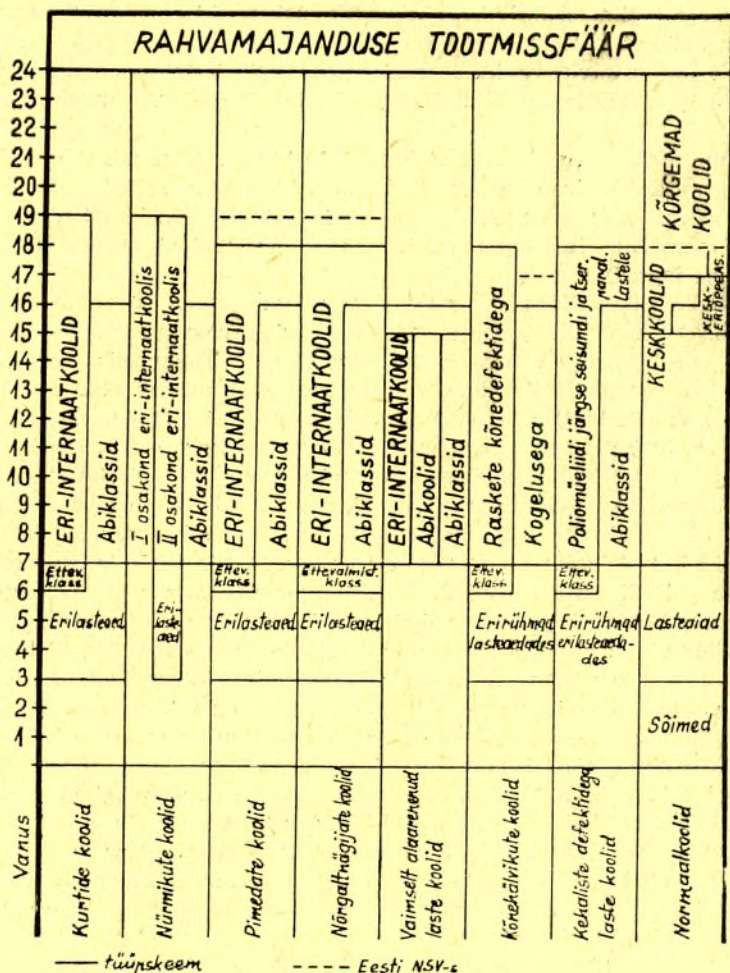 RAHVAMAJANDUSE TOOTMISSFÄÄR
24
23
22
21
20
19
18
17
16
15
14
13
12
11
10
9
8
7
6
5
4
3
2
1
Vanus
ERI-INTERNAATKOOLID
Abiklassid
Ettev.
klass
Erilasteaed
Kurtide koolid
I osakond eri-internaatkoolis
II osakond eri-internaatkoolis
Abiklassid
Eri-
laste-
aed
Nürmikute koolid
ERI-INTERNAATKOOLID
Abiklassid
Ettev.
klass.
Erilasteaed
Pimedate koolid
ERI-INTERNAATKOOLID
Abiklassid
Ettevalmist.
klass
Erilasteaed
Nõrgaltnägijate koolid
ERI-INTERNAATKOOLID
Abikoolid
Abiklassid
Vaimselt alaarenenud
laste koolid
Raskete kõnedefektidega
Kogelusega
Ettev.
klass.
Erirühmad
lasteaedades
Kõnehälvikute koolid
Poliomüeliidi järgse seisundi ja tser.
paral.
lastele
Abiklassid
Ettev.
klass.
Erirühmad
erilasteaeda-
des
Kehaliste defektidega
laste koolid
KÕRGEMAD
KOOLID
KESKKOOLID
KESK-
ERIÕPPEAS.
Lasteaiad
Sõimed
Normaalkoolid
tüüpskeem
Eesti NSV-s